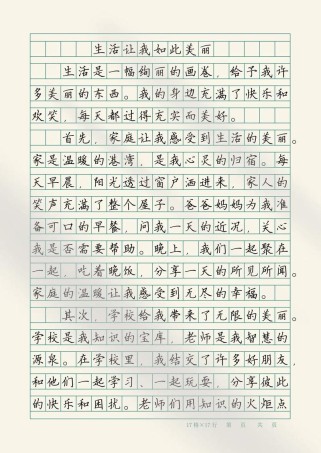 生活让我如此美丽
生活是一幅绚丽的画卷，给予我许
多美丽的东西。我的身边充满了快乐和
欢笑，每天都过得充实而美好。
首先，家庭让我感受到生活的美丽。
家是温暖的港湾，是我心灵的归宿。每
天早晨，阳光透过窗户洒进来，家人的
笑声充满了整个屋子。爸爸妈妈为我准
备可口的早餐，问我一天的近况，关心
我是否需要帮助。晚上，我们一起聚在
一起，吃着晚饭，分享一天的所见所闻。
家庭的温暖让我感受到无尽的幸福。
其次，学校给我带来了无限的美丽。
学校是我知识的宝库，老师是我智慧的
源泉。在学校里，我结交了许多好朋友，
和他们一起学习、一起玩耍，分享彼此
的快乐和困扰。老师们用知识的火炬点